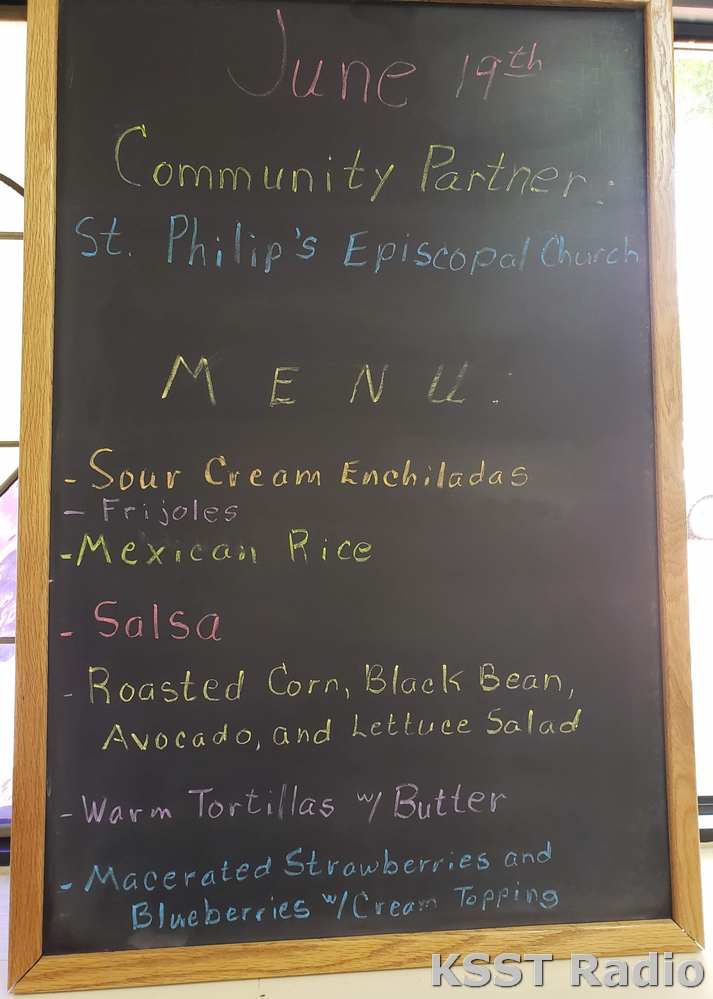 June 19th
Community Partner:
St. Philip's Episcopal Church
MENU:
- Sour Cream Enchiladas
- Frijoles
- Mexican Rice
- Salsa
- Roasted Corn, Black Bean,
Avocado, and Lettuce Salad
- Warm Tortillas w/ Butter
- Macerated Strawberries and
Blueberries w/ Cream Topping
KSST Radio